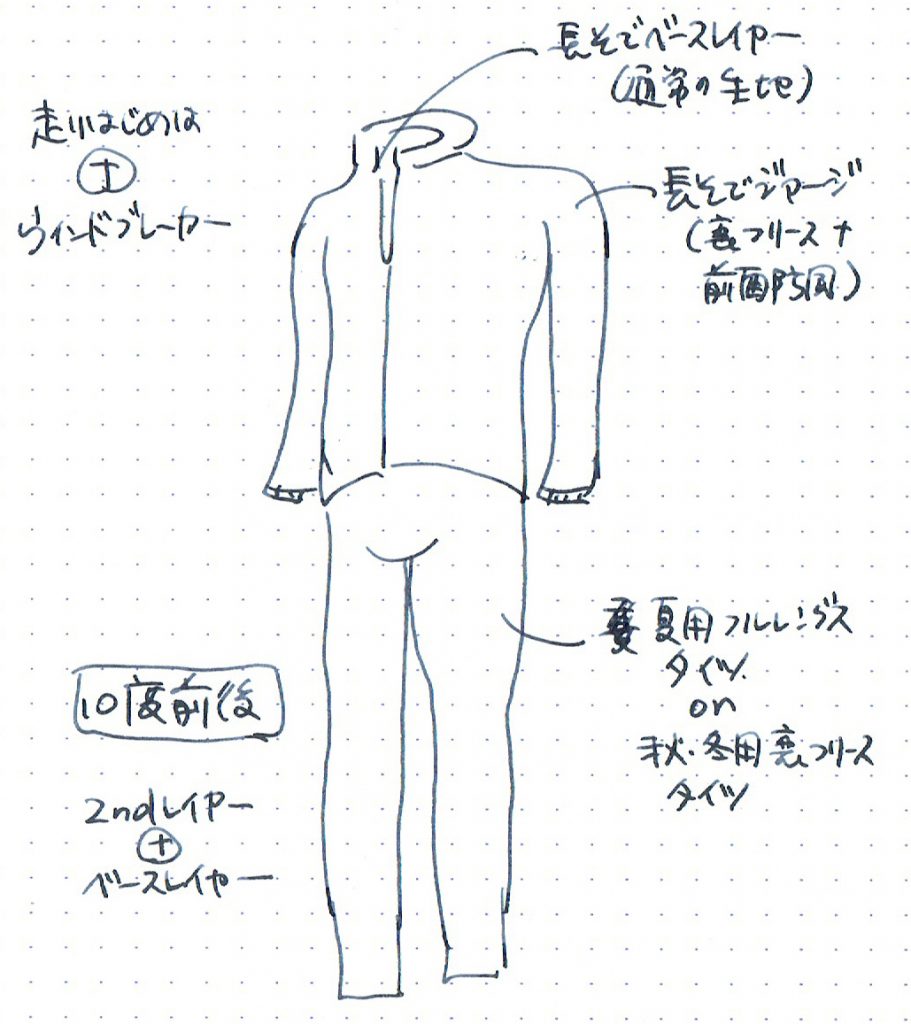 長そでベースレイヤー
(通常の生地)
走りはじめは
+
ウインドブレーカー
長そでジャージ
(裏フリース+
前面防風)
夏用フルレングス
タイツ
on
秋・冬用裏フリース
タイツ
10度前後
2ndレイヤー
+
ベースレイヤー